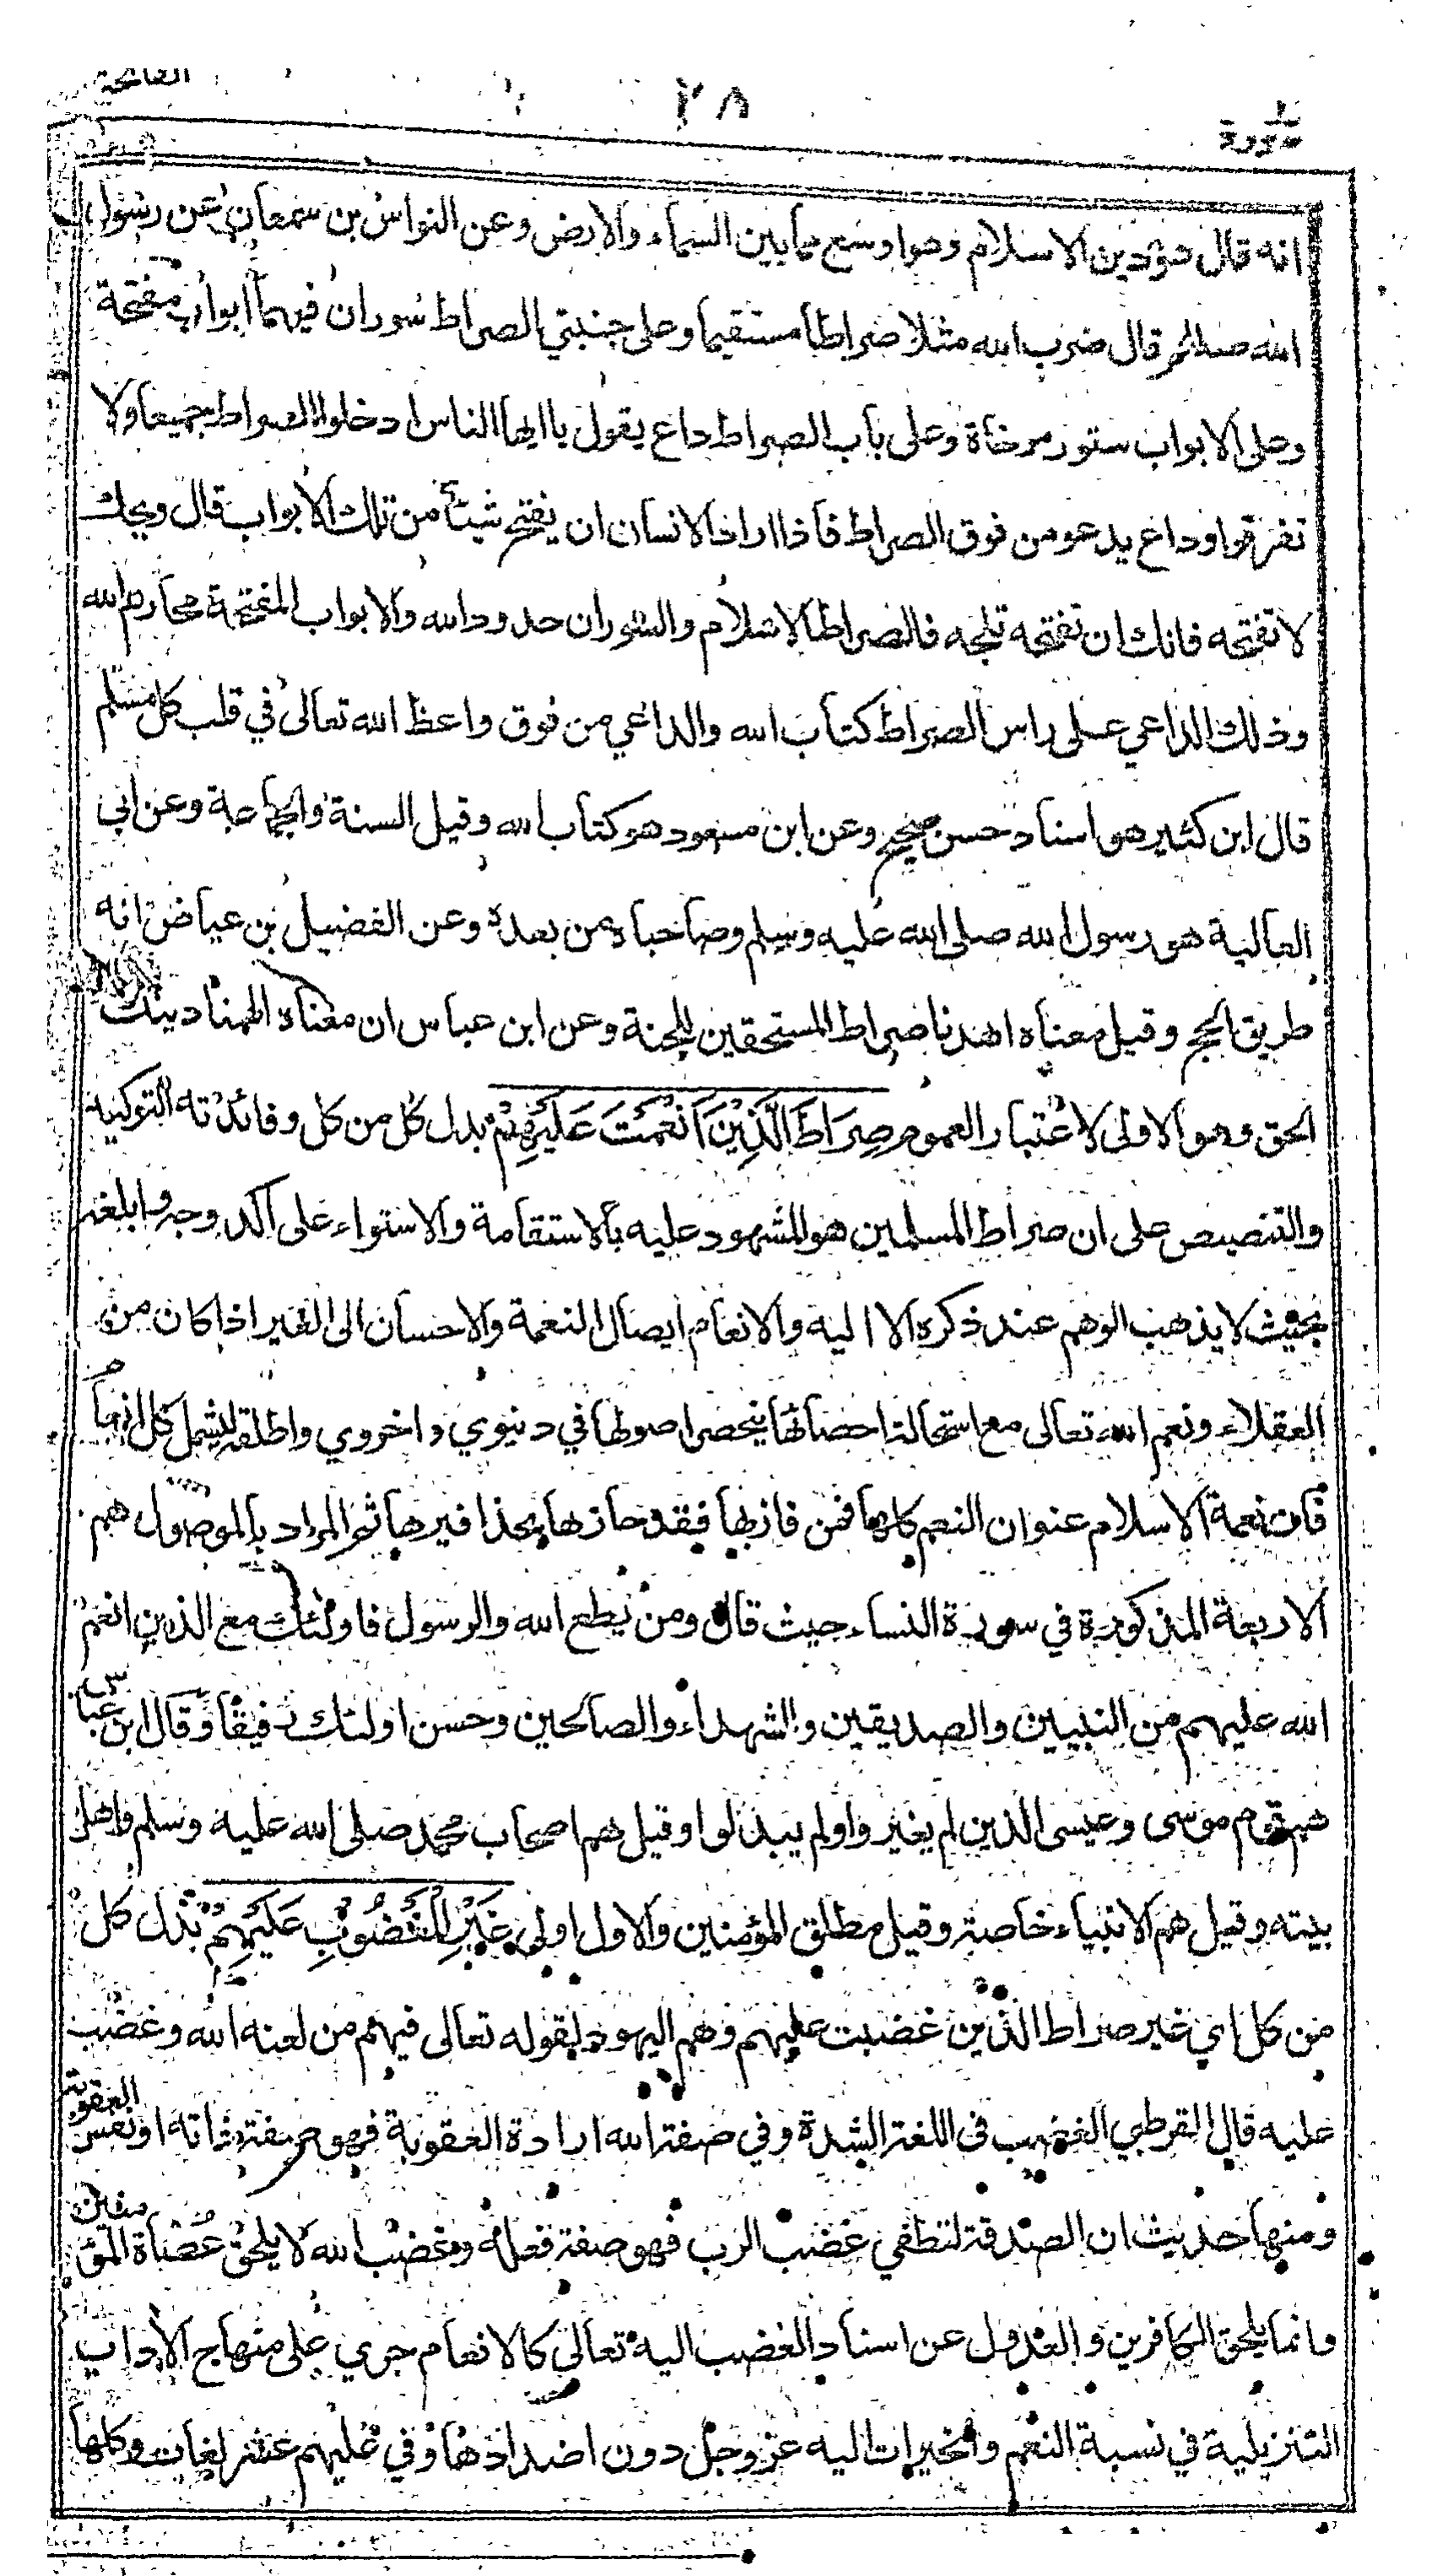 سورة ٢٨ الفاتحة
انه قال هو دين الاسلام وهو اوسع مما بين السماء والارض وعن النواس بن سمعان عن رسول
الله صللم قال ضرب الله مثلا صراطا مستقيما وعلى جنبتي الصراط سوران فيهما ابواب مفتحة
وعلى الابواب ستور مرخاة وعلى باب الصراط داع يقول يا ايها الناس ادخلوا الصراط جميعا ولا
تفرقوا وداع يدعو من فوق الصراط فاذا اراد الانسان ان يفتح شيئا من تلك الابواب قال ويحك
لا تفتحه فانك ان تفتحه تلجه فالصراط الاسلام والسوران حدود الله والابواب المفتحة محارم الله
وذلك الداعي على راس الصراط كتاب الله والداعي من فوق واعظ الله تعالى في قلب كل مسلم
قال ابن كثير هو اسناد حسن صحيح وعن ابن مسعود هو كتاب الله وقيل السنة والجماعة وعن ابي
العالية هو رسول الله صلى الله عليه وسلم وصاحباه من بعده وعن الفضيل بن عياض انه
طريق الحج وقيل معناه اهدنا صراط المستحقين للجنة وعن ابن عباس ان معناه الهمنا دينك
الحق وهو الاولى لاعتبار العموم صِرَاطَ الَّذِيْنَ اَنْعَمْتَ عَلَيْهِمْ بدل كل من كل وفائدته التوكيد
والتنصيص على ان صراط المسلمين هو المشهود عليه بالاستقامة والاستواء على اكد وجه وابلغه
بحيث لا يذهب الوهم عند ذكره الا اليه والانعام ايصال النعمة والاحسان الى الغير اذا كان من
العقلاء ونعم الله تعالى مع استحالة احصائها ينحصر اصولها في دنيوي واخروي واطلقه ليشمل كل انعام
فان نعمة الاسلام عنوان النعم كلها فمن فاز بها فقد حازها بحذافيرها ثم المراد بالموصول هم
الاربعة المذكورة في سورة النساء حيث قال ومن يطع الله والرسول فاولئك مع الذين انعم
الله عليهم من النبيين والصديقين والشهداء والصالحين وحسن اولئك رفيقا وقال ابن عباس
هم قوم موسى وعيسى الذين لم يغيروا ولم يبدلوا وقيل هم اصحاب محمد صلى الله عليه وسلم واهل
بيته وقيل هم الانبياء خاصة وقيل مطلق المؤمنين والاول اولى غَيْرِ الْمَغْضُوْبِ عَلَيْهِمْ بدل كل
من كل اي غير صراط الذين غضبت عليهم وهم اليهود لقوله تعالى فيهم من لعنه الله وغضب
عليه قال القرطبي الغضب في اللغة الشدة وفي صفة الله ارادة العقوبة فهو صفة ذاته او نفس العقوبة
ومنها حديث ان الصدقة لتطفي غضب الرب فهو صفة فعله وغضب الله لا يلحق عصاة المؤمنين
وانما يلحق الكافرين والعدول عن اسناد الغضب اليه تعالى كالانعام جري على منهاج الاداب
التنزيلية في نسبة النعم والخيرات اليه عز وجل دون اضدادها وفي عليهم عشر لغات وكلها